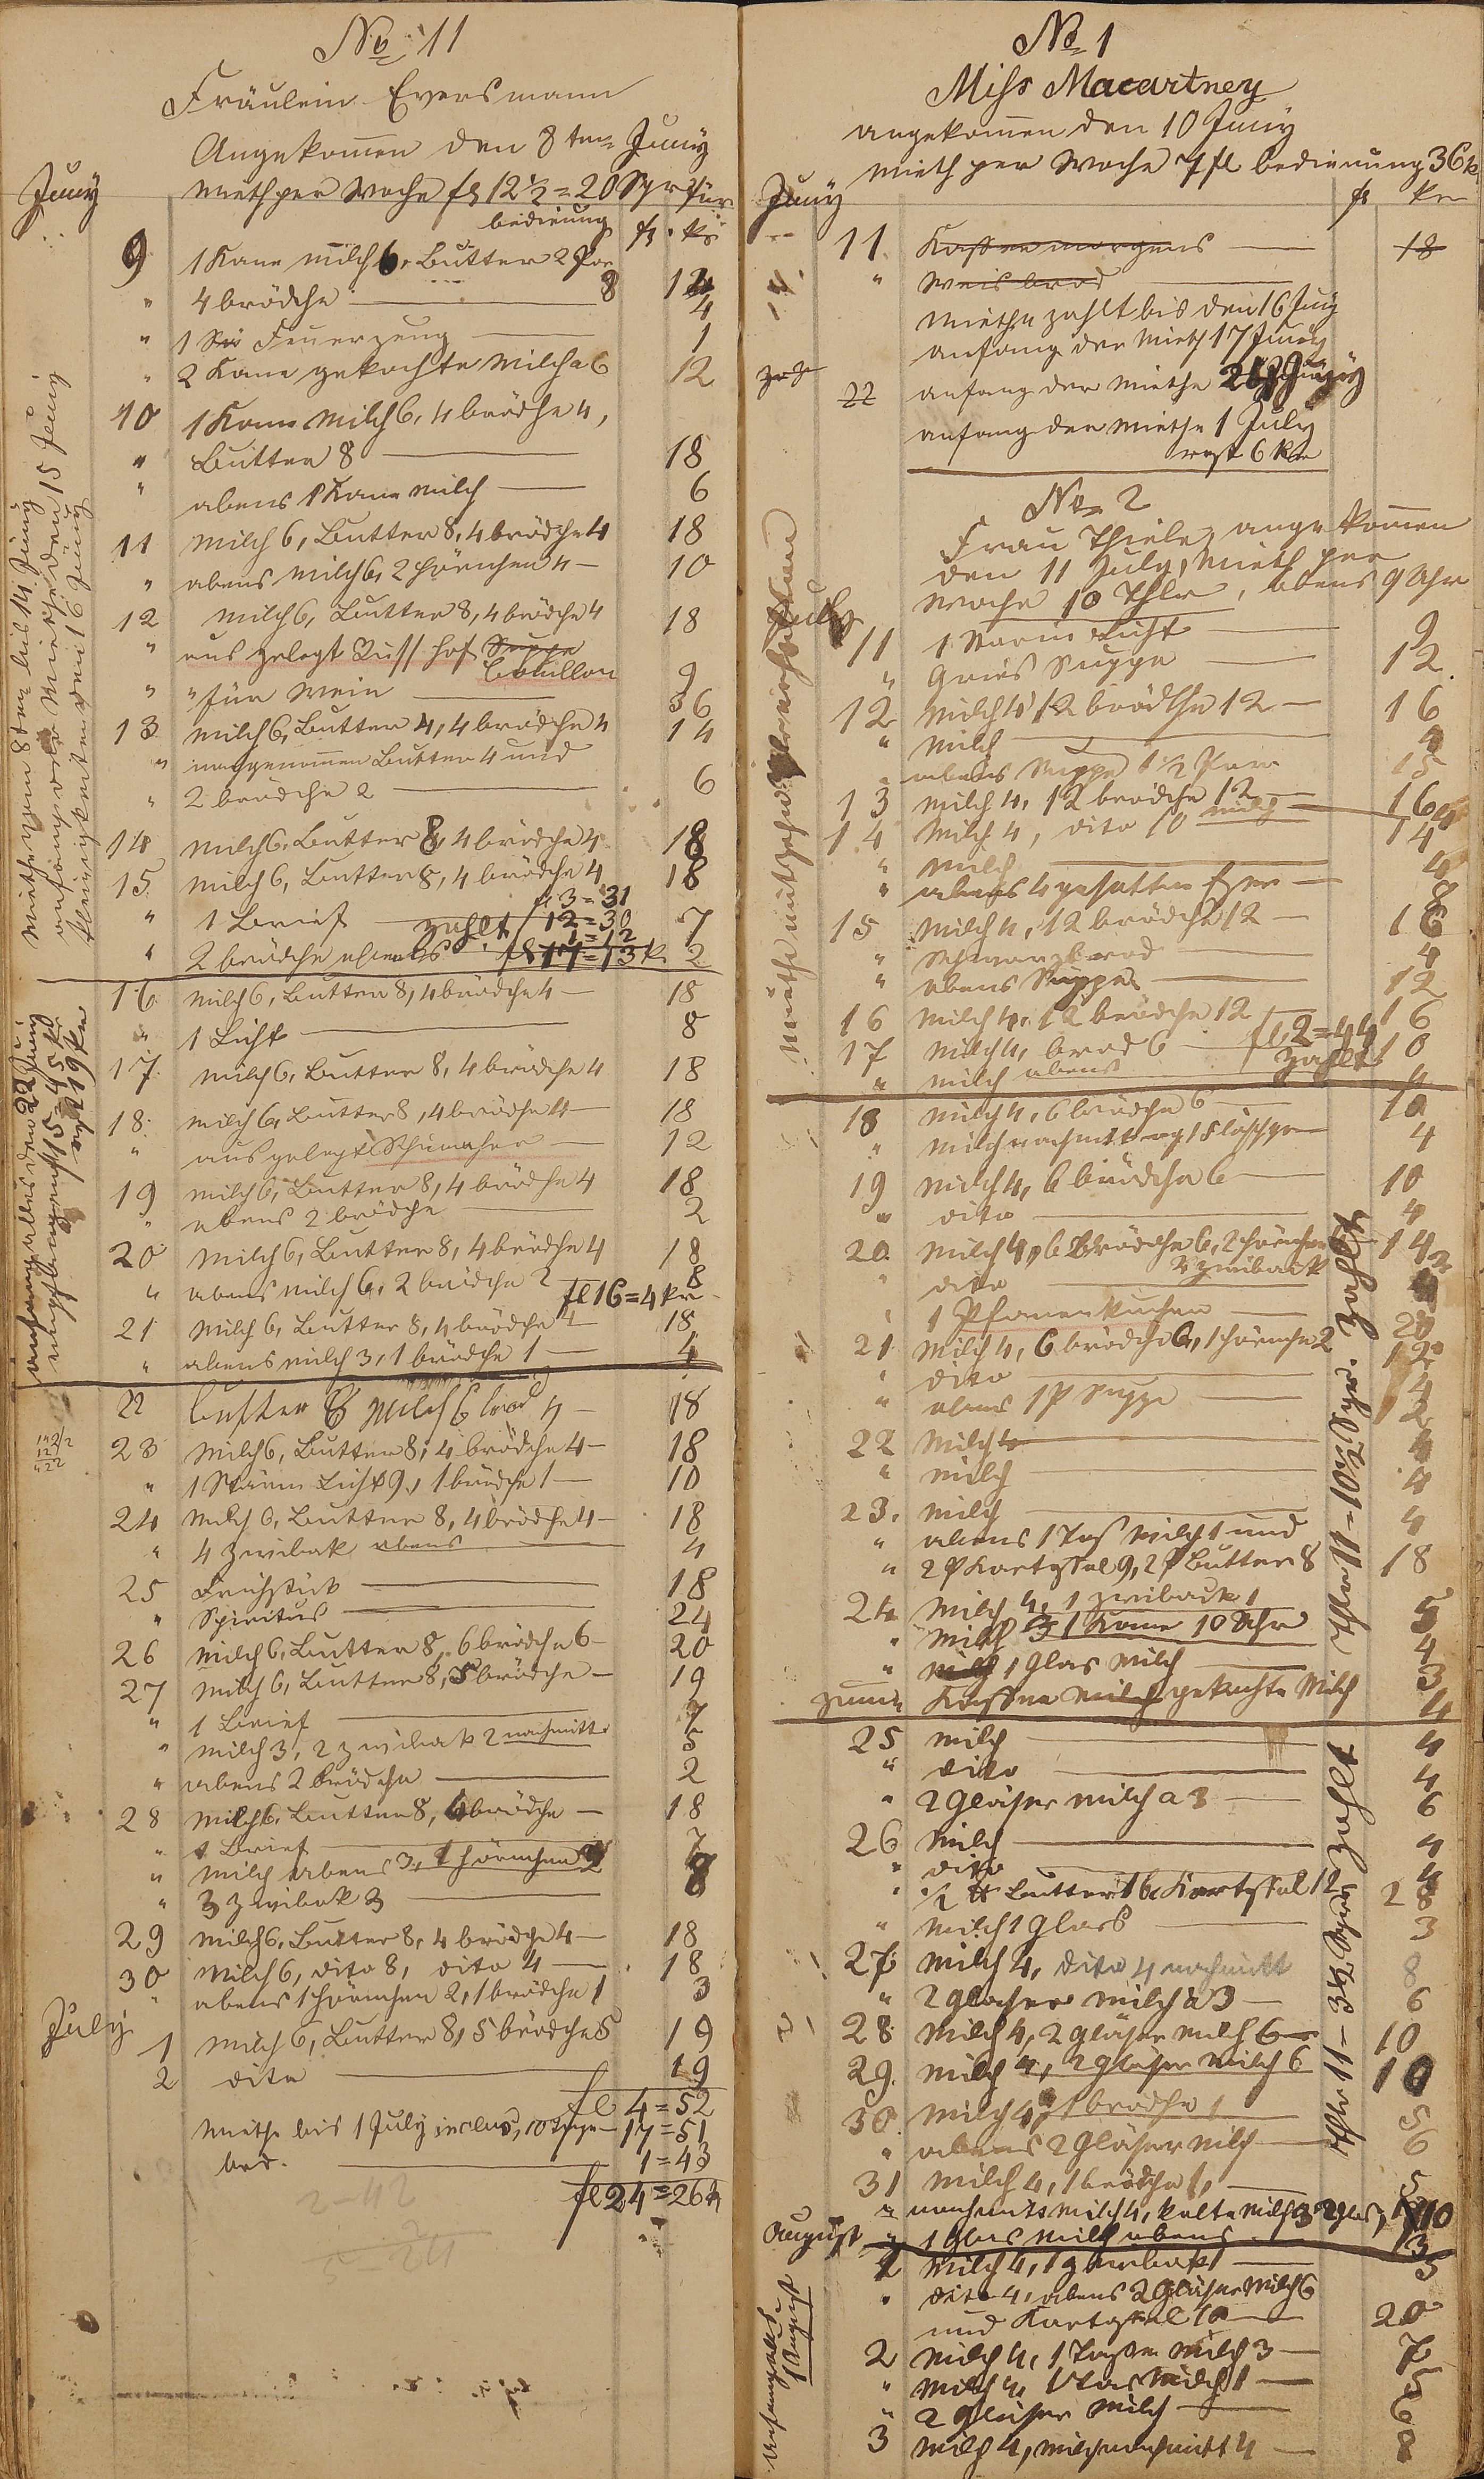 No 11
Fräulein Eversmann
Angekomen den 8ten Juny
Juny
miethper Woche fl 12½ = 20 Sgr für
bedinung fl. kr
9 1 Kane milch 6, Butter 2 Por
" 4 brödche 8 12
4
" 1 Feuerzeug 1
" 2 Kane gekochte Milch a 6 12
10 1 Kane Milch 6, 4 brödche 4,
" Butter 8 18
" abens 1 Kane milch 6
11 Milch 6, Butter 8, 4 brödche 4 18
" abens milch 6, 2 hörnchen 4 10
12 Milch 6, Butter 8, 4 brödche 4 18
" aus gelegt Russ hof Suppe
Bouillon 9
" " für Wein 36
13 milch 6, Butter 4, 4 brödche 4 14
" nachgenomen Butter 4 und
" 2 brödche 2 6
14 milch 6, Butter 8, 4 brödche 4 18
15 milch 6, Butter 8, 4 brödche 4 18
fl 3 = 31
" 1 Brief zahlt 12 = 30 7
1 = 12
" 2 brödche abends fl 17 = 13 k 2
16 milch 6, Butter 8, 4 brödche 4 18
" 1 Licht 8
17 milch 6, Butter 8, 4 brödche 4 18
18 milch 6, Butter 8, 4 brödche 4 18
" aus gelegt Schumacher 12
19 milch 6, Butter 8, 4 brödche 4 18
" abens 2 brödche 2
20 milch 6, Butter 8, 4 brödche 4 18
" abens milch 6, 2 brödche 2 8
fl 16 = 4 kr
21 milch 6, Butter 8, 4 brödche 4 18
" abens milch 3, 1 brödche 1 4
22 butter 8 Milch 6 brod 4 18
23 milch 6, Butter 8, 4 brödche 4 18
" 1 Starin Licht 9, 1 brödche 1 10
24 milch 6, Butter 8, 4 brödche 4 18
" 4 zwiback abens 4
25 Früstück 18
" Spiritus 24
26 milch 6, Butter 8, 6 brödche 6 20
27 milch 6, Butter 8, 5 brödche 19
" 1 Brief 7
" milch 3, 2 zwiback 2 nachmitt 5
" abens 2 brödche 2
28 milch 6, Butter 8, 4 brödche 18
" 1 Brief 7
" milch abens 3, 1 hörnchen 2
" 3 zwibak 3 8
29 milch 6, Butter 8, 4 brödche 4 18
30 milch 6, dito 8, dito 4 18
" abens 1 hörnchen 2, 1 brödche 1 3
July
1 milch 6, Butter 8, 5 brödche 5 19
2 dito 19
fl 4 = 52
miethe bis 1 July inclus, 10 tage 17 = 51
bed. 1 = 43
fl 24 = 26 k
miethe vom 8ten bis 14 Juny
anfang der miethe den 15 Juny
kleinigkeiten den 16 Juny
anfang alles den 22 Juny
empfangen fl 15 = 45 kr
rest 19 kr
No 1
Miss Macartney
angekomen den 10 Juny
mieth per Woche 7 fl bedienung 36 k
Juny fl kr
11 Kaffee morgens 18
" weis brod
Miethe zahlt bis den 16 Juny
anfang der mieth 17 Juny
22 anfang der miethe
anfang der miethe 1 July
rest 6 kr
No 2
Frau Thiele, angekomen
den 11 July, mieth per
Woche 10 Thlr, abens 9 Uhr
July
11 1 Starin Licht 9
" Gries Suppe 12
12 milch 4 12 brödche 12 16
" milch 4
" abens Suppe 1½ Por 15
13 milch 4, 12 brödche 12 milch 16 4
14 milch 4, dito 10 14
" milch 4
" abens 4 gesotten Eyer 8
15 milch 4, 12 brödche 12 16
" Schwarzbrod 4
" abens Suppe 12
16 milch 4, 12 brödche 12 16
17 milch 4, brod 6 fl 2 = 44 10
" milch abens zahlt 4
18 milch 4, 6 brödche 6 10
" milch nachmittag 1 fläschge 4
19 milch 4, 6 brödche 6 10
" dito 4
20 milch 4, 6 brödche 6, 2 hörnchen 14
2 zwiback 2
" dito 4
" 1 Pfanenkuchen 20
21 milch 4, 6 brödche 6, 1 hörnche 2 12
" dito 4
" abens 1 P Suppe 12
22 Milch 4 4
" milch 4
23 milch 4
" abens 1 Tas Milch 1 und
" 2 P Kartoffel 9, 2 P Butter 8 18
24 milch 4, 1 zwiback 1 5
" milch 1 Kane 10 Uhr 4
" 1 Glas milch 3
zum Kaffee gekochte Milch 4
25 milch 4
" dito 4
" 2 gläser milch a 3 6
26 milch 4
" dito 4
" ½ ℔ Butter 16 Kartoffel 12 28
" milch 1 Glas 3
27 milch 4, dito 4 nachmitt 8
" 2 gläser milch a 3 6
28 milch 4, 2 gläser milch 6 10
29 milch 4, 2 gläser milch 6 10
30 milch 4, 1 brödche 1 5
" abens 2 gläser milch 6
31 milch 4, 1 brödche 1, 5
" nachmits milch 4, kalte milch 3 2 glas, 10
August " 1 Glas milch abens 3
1 milch 4, 1 zwibak 1 5
" dito 4, abens 2 gläser milch 6
und Kartoffel 10 20
2 milch 4, 1 Tasse milch 3 7
" milch 4, 1 Tas milch 1 5
" 2 gläser milch 6
3 milch 4, milch nachmitt 4 8
Thlr 11 = 10½ Sgr. zahlt
Thlr 11 — 3½ Sgr zahlt
anfang alles
1 August